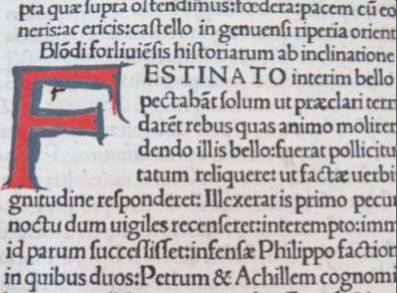 pra quæ ſupra oſtendimus:fœdera:pacem cū eo
neris:ac ericis:caſtello in genuenſi riperia orient
Blōdi forliuiēſis hiſtoriarum ab inclinatione
FESTINATO interim bello
pectabāt ſolum ut præclari terr
darēt rebus quas animo molirer
dendo illis bello:fuerat pollicitu
tatum reliqueret ut factæ uerbi
gnitudine reſponderet: Illexerat is primo pecu
noctu dum uigiles recenſeret:interempto:imm
id parum ſucceſſiſſet:infenſæ Philippo faction
in quibus duos:Petrum & Achillem cognomi